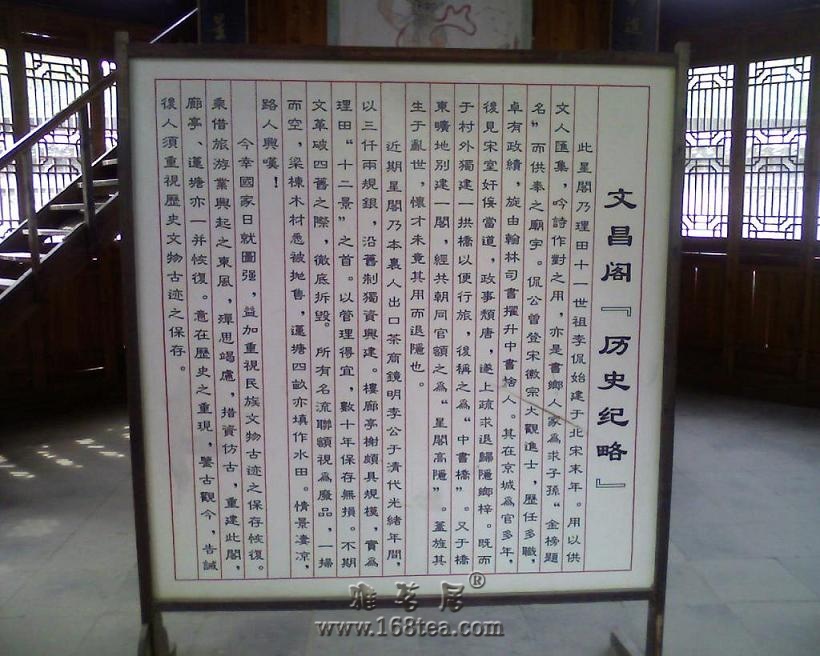 文昌阁『历史纪略』
此星閣乃理田十一世祖李侃始建于北宋末年。用以供
文人匯集，吟詩作對之用，亦是書鄉人家爲求子孫“金榜題
名”而供奉之廟宇。侃公曾登宋徽宗大觀進士，歷任多職，
卓有政績，旋由翰林司書擢升中書捨人。其在京城爲官多年，
後見宋室奸佞當道，政事頹唐，遂上疏求退歸隱鄉梓。既而
于村外獨建一拱橋以便行旅，後稱之爲“中書橋”。又于橋
東曠地別建一閣，經共朝同官額之爲“星閣高隱”。蓋旌其
生于亂世，懷才未竟其用而退隱也。
近期星閣乃本裏人出口茶商鏡明李公于清代光緒年間，
以三仟兩規銀，沿舊制獨資興建。樓廊亭榭頗具規模，實爲
理田“十二景”之首。以管理得宜，數十年保存無損。不期
文革破四舊之際，徹底拆毀。所有名流聯額視爲廢品，一掃
而空，梁棟木材悉被抛售，蓮塘四畝亦填作水田。情景凄凉，
路人興嘆！
今幸國家日就圖强，益加重視民族文物古迹之保存恢復。
乘借旅游業興起之東風，殫思竭慮，措資仿古，重建此閣，
廊亭、蓮塘亦一并恢復。意在歷史之重現，鑒古觀今，告誡
後人須重視歷史文物古迹之保存。
雅茗居®
www.168tea.com